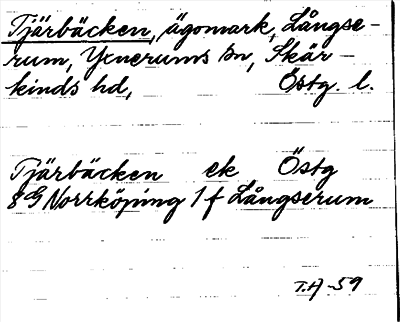 Tjärbäcken, ägomark, Långse-
rum, Yxnerums sn, Skär-
kinds hd, Östg. l.
Tjärbäcken ek Östg
8 G Norrköping 1 f Långserum
T.H-59